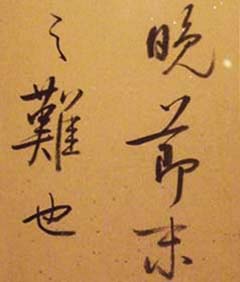 晚節末
之難也